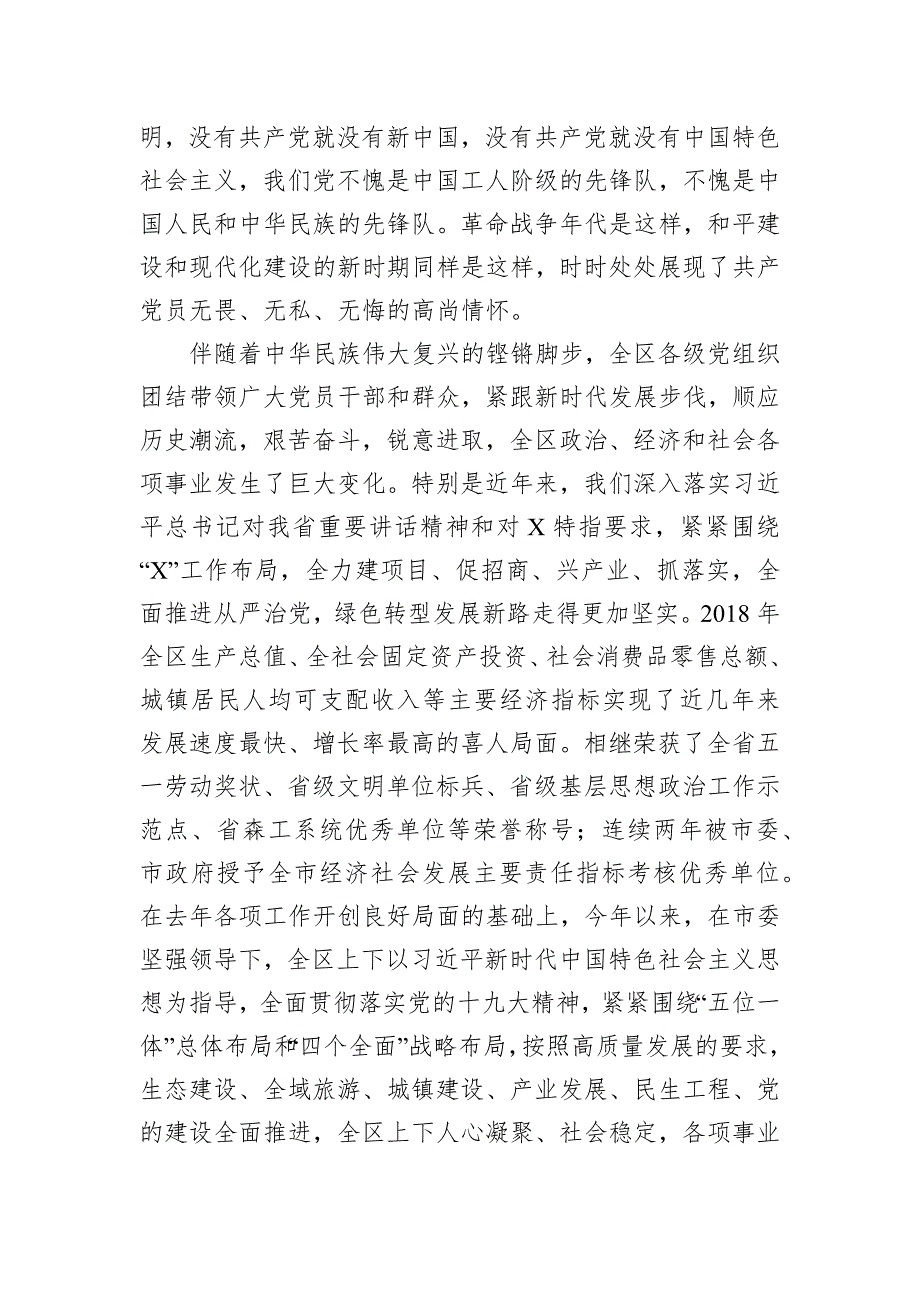 明，没有共产党就没有新中国，没有共产党就没有中国特色
社会主义，我们党不愧是中国工人阶级的先锋队，不愧是中
国人民和中华民族的先锋队。革命战争年代是这样，和平建
设和现代化建设的新时期同样是这样，时时处处展现了共产
党员无畏、无私、无悔的高尚情怀。
伴随着中华民族伟大复兴的铿锵脚步，全区各级党组织
团结带领广大党员干部和群众，紧跟新时代发展步伐，顺应
历史潮流，艰苦奋斗，锐意进取，全区政治、经济和社会各
项事业发生了巨大变化。特别是近年来，我们深入落实习近
平总书记对我省重要讲话精神和对 X 特指要求，紧紧围绕
“X”工作布局，全力建项目、促招商、兴产业、抓落实，全
面推进从严治党，绿色转型发展新路走得更加坚实。2018 年
全区生产总值、全社会固定资产投资、社会消费品零售总额、
城镇居民人均可支配收入等主要经济指标实现了近几年来
发展速度最快、增长率最高的喜人局面。相继荣获了全省五
一劳动奖状、省级文明单位标兵、省级基层思想政治工作示
范点、省森工系统优秀单位等荣誉称号；连续两年被市委、
市政府授予全市经济社会发展主要责任指标考核优秀单位。
在去年各项工作开创良好局面的基础上，今年以来，在市委
坚强领导下，全区上下以习近平新时代中国特色社会主义思
想为指导，全面贯彻落实党的十九大精神，紧紧围绕“五位一
体”总体布局和“四个全面”战略布局，按照高质量发展的要求，
生态建设、全域旅游、城镇建设、产业发展、民生工程、党
的建设全面推进，全区上下人心凝聚、社会稳定，各项事业